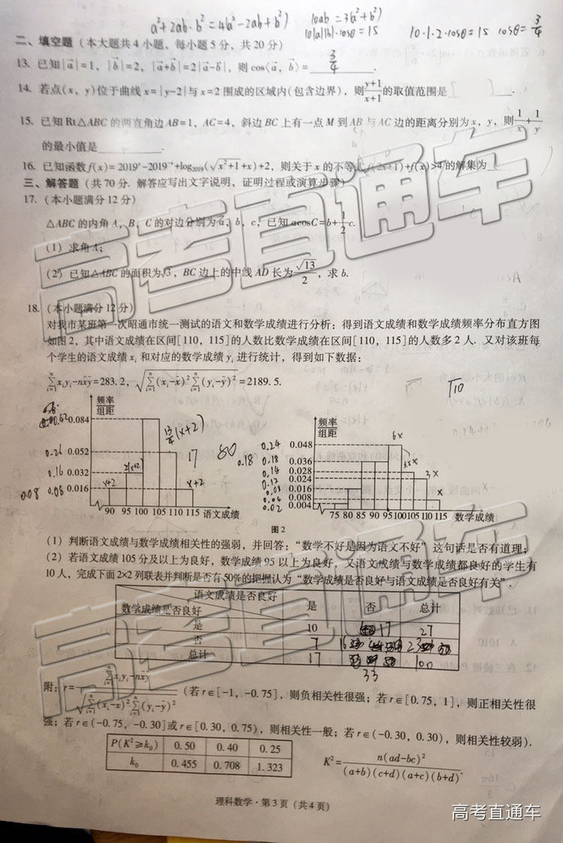 a²+2ab+b²=4(a²-2ab+b²) 10ab=3(a²+b²)
10|a||b|·cosθ=15 10·1·2·cosθ=15 cosθ=3/4
二、填空题（本大题共4小题，每小题5分，共20分）
13. 已知|a|=1，|b|=2，|a+b|=2|a-b|，则cos⟨a，b⟩= 3/4 .
14. 若点(x，y)位于曲线x=|y-2|与x=2围成的区域内(包含边界)，则(y+1)/(x+1)的取值范围是
15. 已知Rt△ABC的两直角边AB=1，AC=4，斜边BC上有一点M到AB与AC边的距离分别为x，y，则1/x+1/y
的最小值是
16. 已知函数f(x)=2019^x-2019^(-x)+log₂₀₁₉(√(x²+1)+x)+2，则关于x的不等式f(2x+1)+f(x)>4的解集为
三、解答题（共70分. 解答应写出文字说明、证明过程或演算步骤）
17.（本小题满分12分）
△ABC的内角A，B，C的对边分别为a，b，c，已知acosC=b+1/2c.
（1）求角A；
（2）已知△ABC的面积为√3，BC边上的中线AD长为√13/2，求b.
18.（本小题满分12分）
对我市某班第一次昭通市统一测试的语文和数学成绩进行分析：得到语文成绩和数学成绩频率分布直方图
如图2，其中语文成绩在区间[110，115]的人数比数学成绩在区间[110，115]的人数多2人. 又对该班每
个学生的语文成绩xᵢ和对应的数学成绩yᵢ进行统计，得到如下数据：
∑xᵢyᵢ-nx̄ȳ=283.2，√(∑(xᵢ-x̄)²∑(yᵢ-ȳ)²)=2189.5.
√10
频率/组距
0.084
0.052
0.032
0.016
0.26
0.16
0.08
0.08
x+2
x+2
17
50
90 95 100 105 110 115 语文成绩
频率/组距
0.048
0.036
0.028
0.024
0.016
0.008
0.004
0.24
0.18
0.18
0.14
0.12
0.04
0.02
6x
3x
x
75 80 85 90 95 100 105 110 115 数学成绩
图2
（1）判断语文成绩与数学成绩相关性的强弱，并回答：“数学不好是因为语文不好”这句话是否有道理；
（2）若语文成绩105分及以上为良好，数学成绩95以上为良好，又语文成绩与数学成绩都良好的学生有
10人，完成下面2×2列联表并判断是否有50%的把握认为“数学成绩是否良好与语文成绩是否良好有关”.
语文成绩是否良好
数学成绩是否良好 是 否 总计
是 10 17 27
否 7 16 23
总计 17 33
附：r=(∑xᵢyᵢ-nx̄ȳ)/(√(∑(xᵢ-x̄)²)√(∑(yᵢ-ȳ)²))（若r∈[-1，-0.75]，则负相关性很强；若r∈[0.75，1]，则正相关性很
强；若r∈(-0.75，-0.30]或r∈[0.30，0.75)，则相关性一般；若r∈(-0.30，0.30)，则相关性较弱）.
P(K²≥k₀) 0.50 0.40 0.25
k₀ 0.455 0.708 1.323
K²=n(ad-bc)²/((a+b)(c+d)(a+c)(b+d)).
理科数学·第3页（共4页）
高考直通车
高考直通车
高考直通车
高考直通车